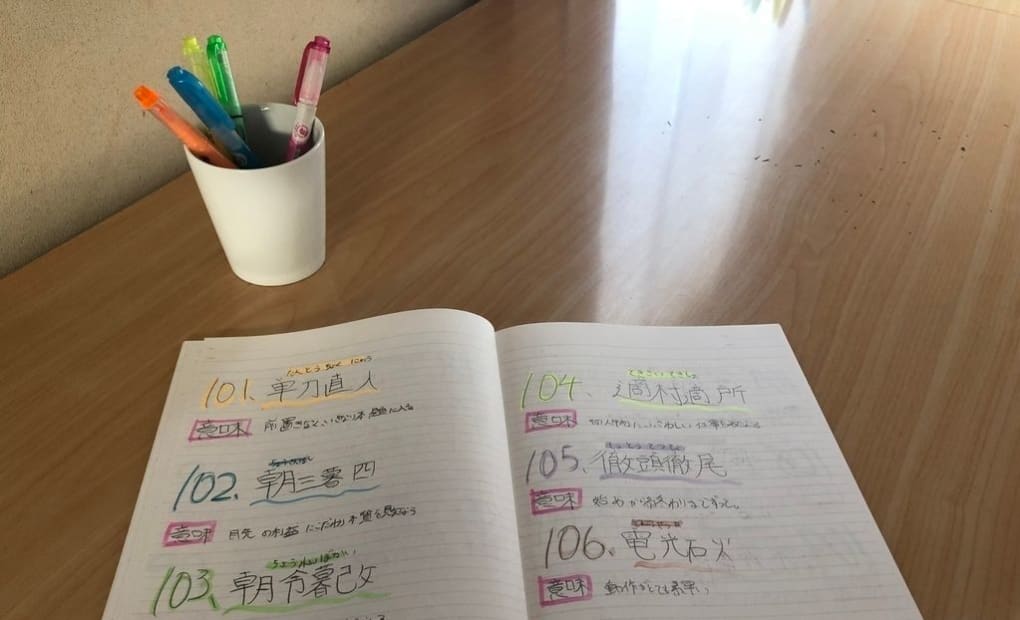 たんとうちょくにゅう
101、単刀直人
意味 前置きなしにいきなり本題に入る
102、朝三暮四
意味 目先の利益にこだわり本質を見失う
ちょうれいぼかい
103、朝令暮改
てきざいてきしょ
104、適村適所
意味
てっとうてつび
105、徹頭徹尾
意味 始めから終わりまでずっと。
106、電光石火
意味 動作がとても素早い